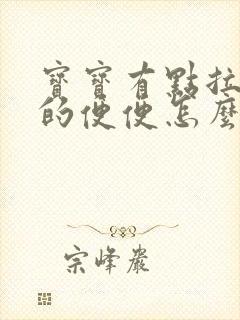 寶寶有點拉
的便便怎麼
宗峰巖